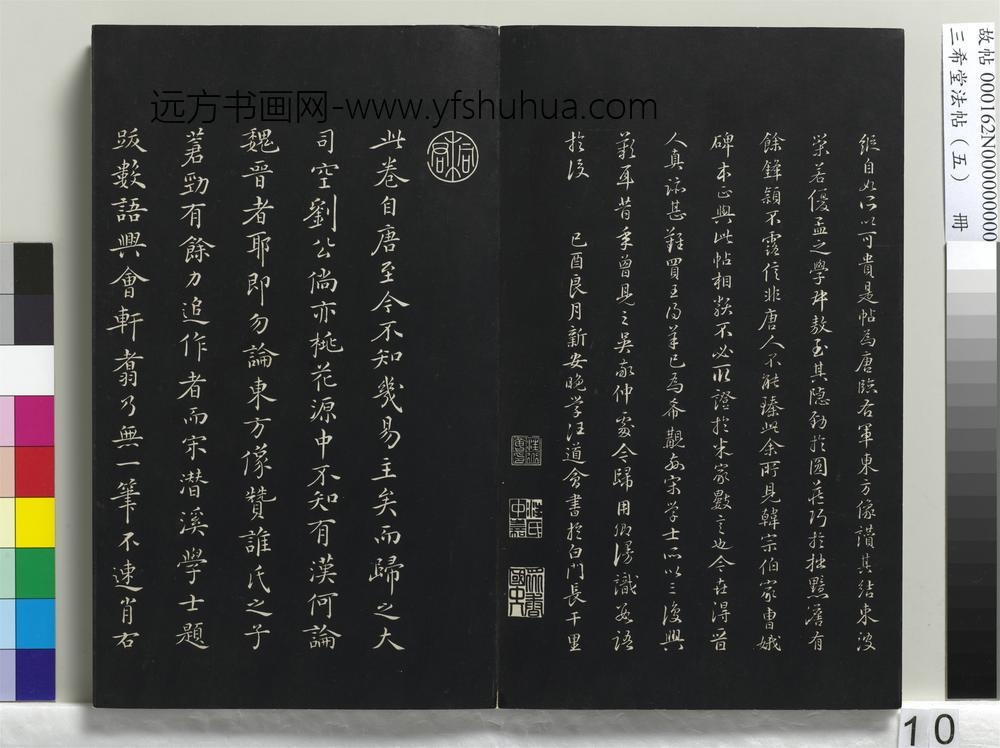 故帖 000162N000000000
三希堂法帖（五） 冊
远方书画网-www.yfshuhua.com
縱自如所以可貴是帖為唐臨右軍東方像讚其結束波
策若優孟之學叔敖至其隱勁於圓藏巧於拙黯澹有
餘鋒穎不露信非唐人不能臻此余所見韓宗伯家曹娥
碑本正與此帖相類不必取證於米家數言也今世得晉
人真跡甚難買王得羊已為希觀此宋學士所以三復興
歎耳昔年曾見之吳家仲家今歸用卿漫識數語
於後 己酉良月新安晚學汪道會書於白門長干里
此卷自唐至今不知幾易主矣而歸之大
司空劉公倘亦桃花源中不知有漢何論
魏晉者耶即勿論東方像贊誰氏之子
蒼勁有餘力追作者而宋潛溪學士題
跋數語興會軒翥乃無一筆不逮肖右
10